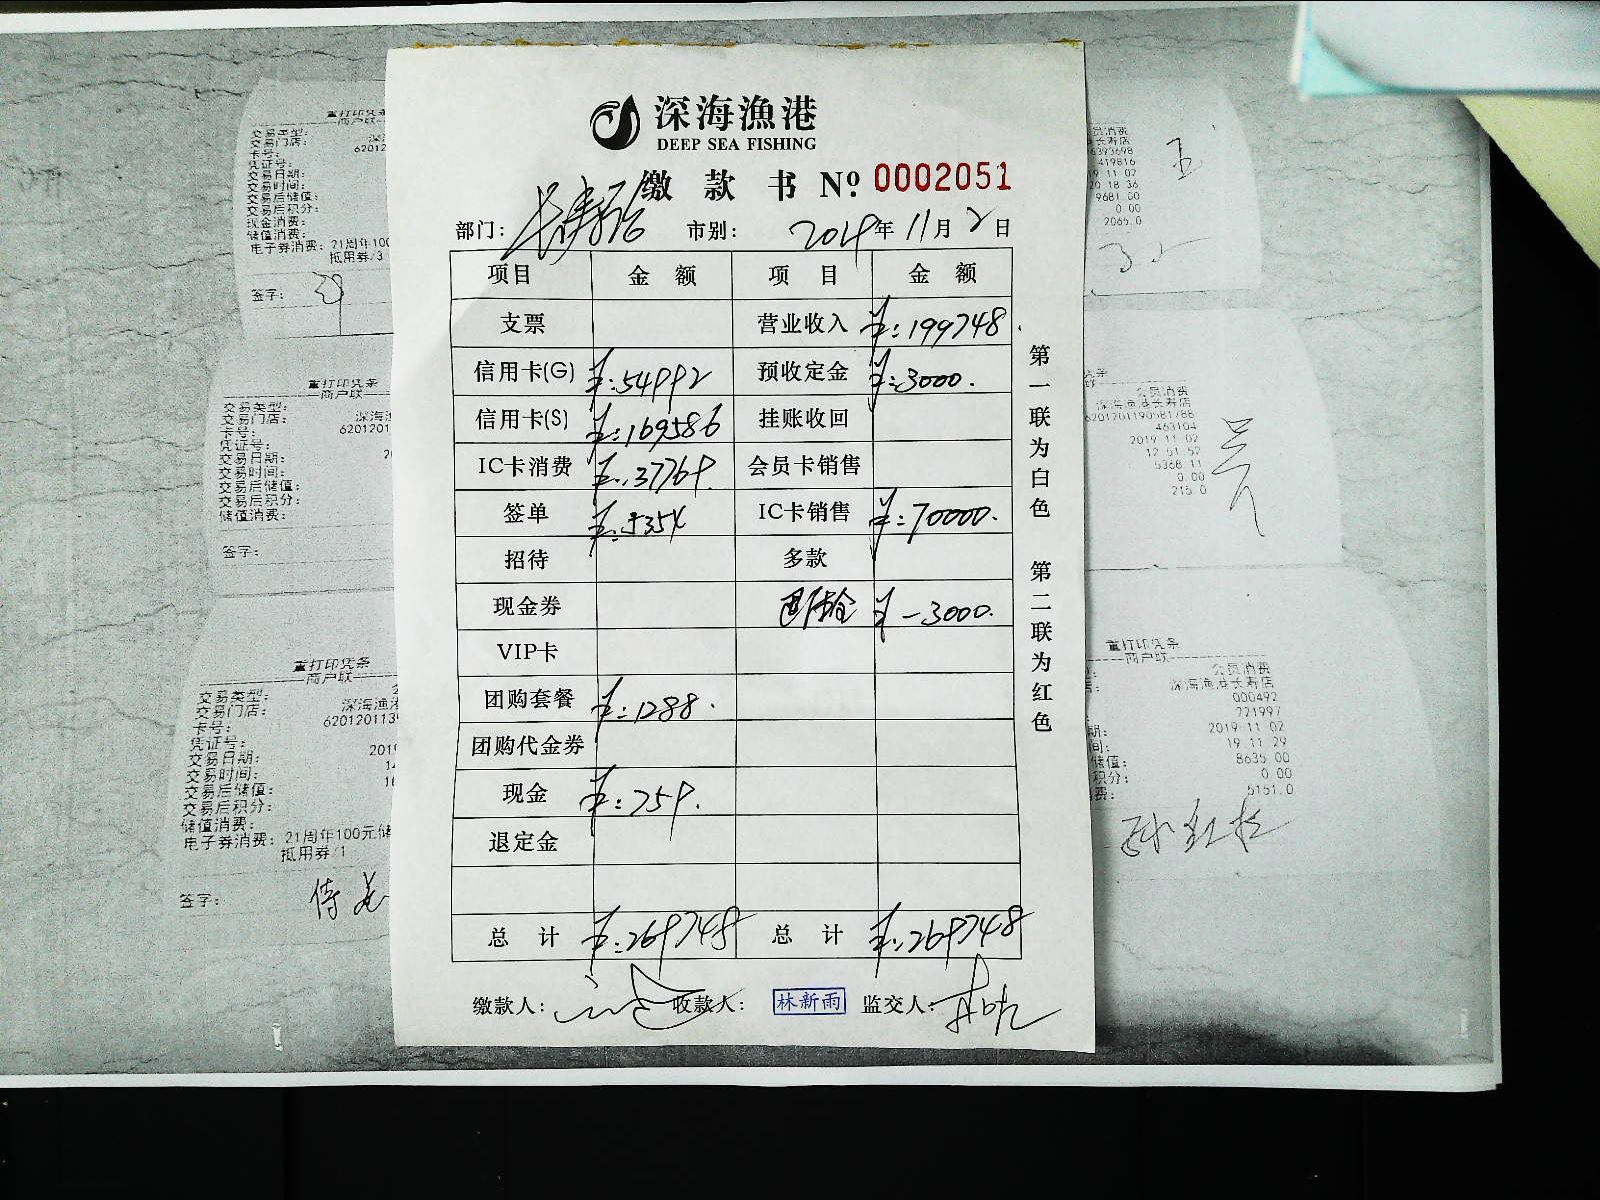 深海漁港
DEEP SEA FISHING
缴款书 Nº 0002051
部门: 长寿店 市别: 2019年11月2日
项目 金额 项目 金额
支票 营业收入 ¥:199748.
信用卡(G) ¥:54992 预收定金 ¥:3000.
信用卡(S) ¥:169586 挂账收回
IC卡消费 ¥:37769. 会员卡销售
签单 ¥:5354 IC卡销售 ¥:70000.
招待 多款
现金券 ¥-3000.
VIP卡
团购套餐 ¥:1288.
团购代金券
现金 ¥:759.
退定金
总计 ¥:269748 总计 ¥:269748
缴款人: 收款人: 林新雨 监交人:
第一联为白色 第二联为红色
重打印凭条
商户联
交易类型:
交易门店: 深
卡号: 62012
凭证号:
交易日期:
交易时间:
交易后储值:
交易后积分:
现金消费:
储值消费:
电子券消费: 21周年100
抵用券/3
签字:
重打印凭条
商户联
交易类型:
交易门店: 深海
卡号: 620120
凭证号:
交易日期: 2
交易时间:
交易后储值:
交易后积分:
储值消费:
签字:
重打印凭条
商户联
交易类型:
交易门店: 深海渔
卡号: 620120113
凭证号:
交易日期: 201
交易时间: 1
交易后储值: 16
交易后积分:
储值消费:
电子券消费: 21周年100元储
抵用券/1
签字:
员消费
长寿店
5393698
419816
19 11 02
20 18 36
9681.00
0.00
2065.0
王
凭条
联
会员消费
深海渔港长寿店
6201201190581786
463104
2019 11 02
12 51 52
5368.11
0.00
215.0
吴
重打印凭条
商户联
会员消费
深海渔港长寿店
000492
221997
期: 2019 11 02
间: 19 11 29
储值: 8635.00
积分: 0.00
费: 5151.0